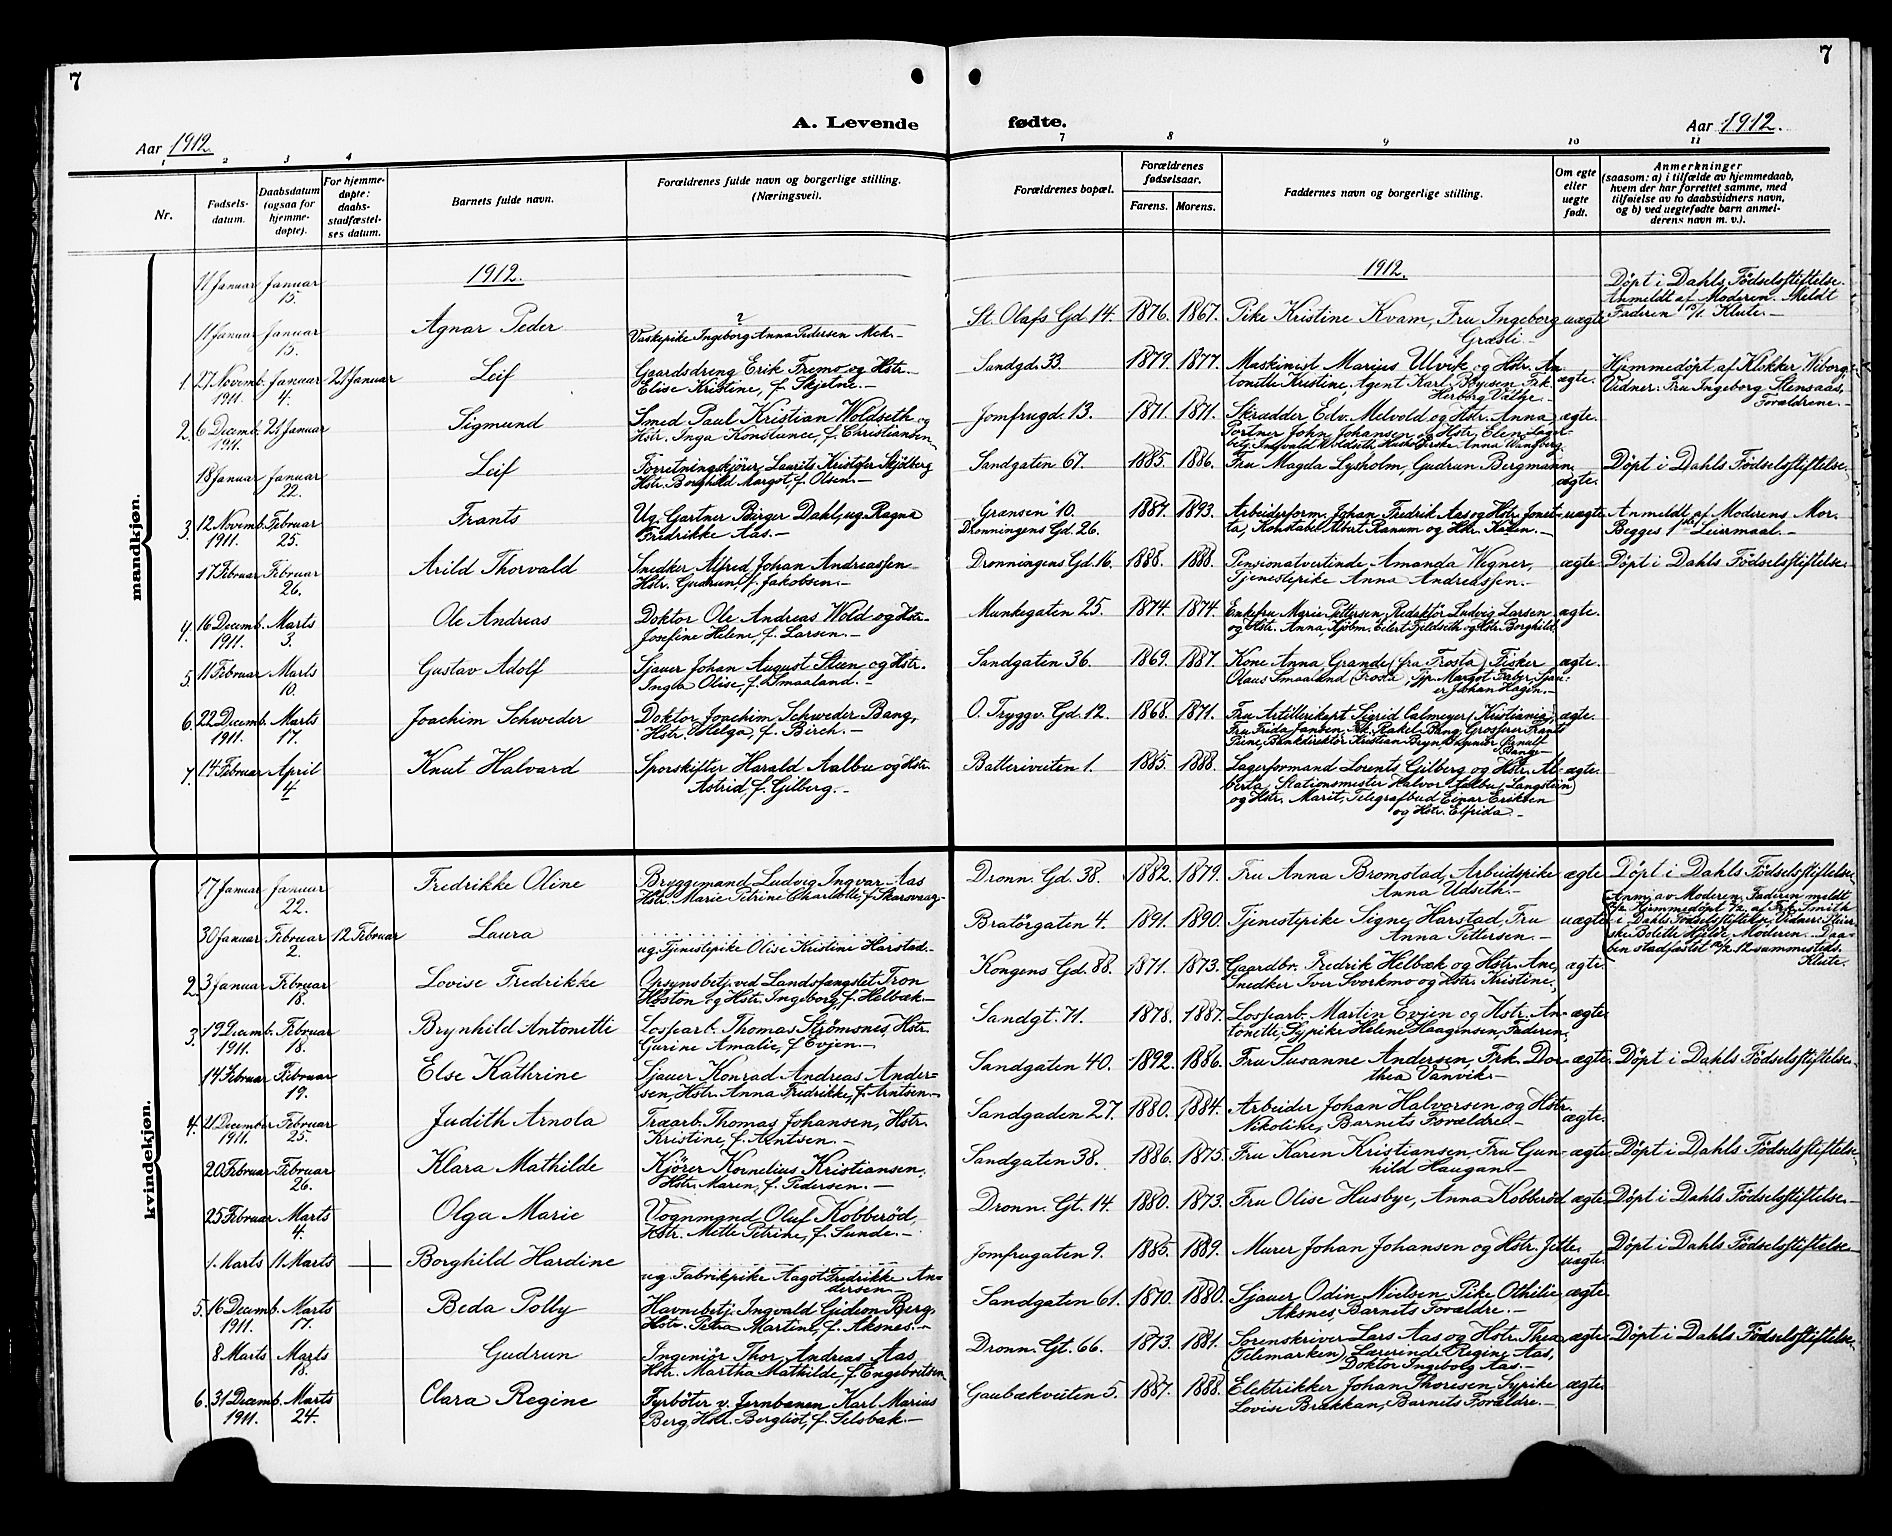 7
7
A. Levende
fødte.
Aar 1912.
Aar 1912.
1 2 3 4 7 8 9 10 11
Nr.
Fødsels-
datum.
Daabsdatum
(ogsaa for
hjemme-
døpte).
For hjemme-
døpte:
daabs-
stadfæstel-
ses datum.
Barnets fulde navn.
Forældrenes fulde navn og borgerlige stilling.
(Næringsvei).
Forældrenes bopæl.
Forældrenes
fødselsaar.
Farens. Morens.
Faddernes navn og borgerlige stilling.
Om egte
eller
uegte
født.
Anmerkninger
(saasom: a) i tilfælde av hjemmedaab,
hvem der har forrettet samme, med
tilføielse av to daabsvidners navn,
og b) ved uegtefødte barn anmel-
derens navn m. v.).
mandkjøn.
1912.
1912.
11 Januar Januar
15.
11 Januar Januar
15.
Agnar Peder
?
Vaskepike Ingeborg Anna Pedersen Mek.—
St. Olafs Gd 14. 1876. 1867.
Pike Kristine Kvam, Fru Ingeborg
Græsli.—
uægte
Döpt i Dahls Födselsstiftelse.
Anmeldt af Moderen. Meldt
Faderen Klute.—
1. 27 Novemb. Januar 21 Januar
1911. 4.
Leif
Gaardsdreng Erik Fremo og Hstr.
Elise Kristine, f. Skjetne.—
Sandgd. 33. 1879. 1877.
Maskinist Marius Ulvik og Hstr. An
tonette Kristine, Agent Karl Boysen Frk.
Herborg Valbye.—
ægte.
Hjemmedöpt af Klokker Wiborg.
Vidner: Fru Ingeborg Stensaas,
Forældrene.—
2. 6 Decemb. 21 Januar
1911.
Sigmund
Smed Paul Kristian Woldseth og
Hstr. Inga Konstance, f. Christiansen
Jomfrugd. 13. 1871. 1871.
Skrædder Edv. Melvold og Hstr. Anna
Portner John Johansen og Hstr. Eline, Lager-
betj. Ingvald Woldseth, Husholderske Anna Wangberg.
ægte.
18 Januar Januar
22.
Leif
Forretningskjörer Laurits Kristofer Skjölberg
Hstr. Borghild Margot, f. Olsen.—
Sandgaten 67. 1885. 1886.
Fru Magda Lysholm, Gudrun Bergmann
ægte.
Döpt i Dahls Födselsstiftelse.
3. 12 Novemb. Februar
1911. 25.
Frants
Ug. Gartner Birger Dahl, ug. Ragna
Fredrikke Aas.—
"Gransen" 10.
Dronningens Gd. 26.
1887. 1893.
Arbeiderform. Johan Fredrik Aas og Hstr. Jonet-
ta, Konstabel Albert Ranum og Hstr. Karen.—
uægte
Anmeldt af Moderens Mor.
Begges 1ste Leiermaal.—
17 Februar Februar
26.
Arild Thorvald
Snedker Alfred Johan Andreassen
Hstr. Gudrun, f. Jakobsen.—
Dronningens Gd. 16. 1888. 1888.
Pensionatvertinde Amanda Wigner,
Tjenestepike Anna Andreassen.—
ægte
Döpt i Dahls Födselsstiftelse.
4. 16 Decemb. Marts
1911. 3.
Ole Andreas
Doktor Ole Andreas Wold og Hstr.
Josefine Helene, f. Larsen.—
Munkegaten 25. 1874. 1874.
Enkefru Marie Pettersen, Redaktör Ludvig Larsen
og Hstr. Anna, Kjöbm. Eilert Fjeldseth og Hstr. Borghild.
ægte.
5. 11 Februar Marts
10.
Gustav Adolf
Sjauer Johan August Steen og Hstr.
Inga Olise, f. Smaaland.—
Sandgaten 36. 1869. 1887.
Kone Anna Grande (fra Frosta) Fisker
Olaus Smaaland (Frosta, Syp. Margot Faber, Sjau-
er Johan Hagen.—
ægte.
6. 22 Decemb. Marts
1911. 17.
Joachim Schweder
Doktor Joachim Schweder Bang,
Hstr. Helga, f. Birch.—
O. Tryggv. Gd. 12. 1868. 1871.
Fru Artillerikapt. Sigrid Calmeyer (Kristiania),
Fru Frida Jansen, Frk. Rakel Bang, Grosserer Frants
Piene, Bankdirektör Kristian Bryn,
Bang.—
ægte.
7. 14 Februar April
4
Knut Halvard
Sporskifter Harald Aalbu og Hstr.
Astrid, f. Gilberg.—
Batteriveiten 1. 1885. 1888.
Lagerformand Lorents Gilberg og Hstr. Al-
berta, Stationsmester Halvor Aalbu (Langstein)
og Hstr. Marit, Telegrafbud Einar Eriksen
og Hstr. Elfrida.—
ægte.
kvindekjøn.
17 Januar Januar
22.
Fredrikke Oline
Bryggemand Ludvig Ingvar Aas
Hstr. Marie Petrine Charlotte, f. Skarsvaag.—
Dronn. Gd. 38. 1882. 1879.
Fru Anna Bromstad, Arbeidspike
Anna Udseth.—
ægte
Döpt i Dahls Födselsstiftelse.
30 Januar Februar 12 Februar
2.
Laura
ug. Tjenestepike Olise Kristine Harstad.—
Bratörgaten 4. 1891. 1890.
Tjenestepike Signe Harstad, Fru
Anna Pettersen.—
uægte
Anm. av Moderen, Faderen meldt
Hjemmedöpt 2/2 af Smith
i Dahls Födselsstiftelse. Vidner: Pleier-
ske Bolette Hjelde, Moderen. Daa-
ben stadfæstet 12/2 12 sammesteds.
Klute.
2. 3 Januar Februar
18.
Lovise Fredrikke
Opsynsbetj. ved Landsfængslet Tron
Hoston og Hstr. Ingeborg, f. Helbæk.—
Kongens Gd. 88. 1871. 1873.
Gaardbr. Fredrik Helbæk og Hstr. Ane,
Snedker Iver Svorkmo og Hstr. Kristine.
ægte.
3. 19 Decemb. Februar
1911. 18.
Brynhild Antonette
Lossearb. Thomas Strömsnes, Hstr.
Gurine Amalie, f. Evjen.—
Sandgt. 71. 1878. 1887.
Lossearb. Martin Evjen og Hstr. An-
tonette, Sypike Helene Haagensen, Faderen.
ægte.
14 Februar Februar
19.
Else Kathrine
Sjauer Konrad Andreas Ander-
sen, Hstr. Anna Fredrikke, f. Arntsen.—
Sandgaten 40. 1892. 1886.
Fru Susanne Andersen, Frk. Dor-
thea Vanvik.—
ægte.
Döpt i Dahls Födselsstiftelse.
4. 21 December Februar
1911. 25.
Judith Arnola
Træarb. Thomas Johansen, Hstr.
Kristine, f. Arntsen.—
Sandgaden 27. 1880. 1884.
Arbeider Johan Halvorsen og Hstr.
Nikoline, Barnets Forældre.—
ægte.
20 Februar Februar
26.
Klara Mathilde
Kjörer Kornelius Kristiansen,
Hstr. Maren, f. Pedersen.—
Sandgaten 38. 1886. 1875.
Fru Karen Kristiansen, Fru Gun-
hild Haugan.—
ægte.
Döpt i Dahls Födselsstiftelse.
25 Februar Marts
4.
Olga Marie
Vognmand Oluf Kobberöd,
Hstr. Mette Petrine, f. Sunde.—
Dronn. Gt. 14. 1880. 1873.
Fru Olise Husbye, Anna Kobberöd
ægte.
Döpt i Dahls Födselsstiftelse.—
1. Marts 11 Marts
Borghild Hardine
ug. Fabrikpike Aagot Fredrikke An-
dersen.—
Jomfrugaten 9. 1885. 1889.
Murer Johan Johansen og Hstr. Jette.
uægte.
Döpt i Dahls Födselsstiftelse.—
5. 16 Decemb. Marts
1911. 17.
Beda Polly
Havnebetj. Ingvald Gideon Berg.
Hstr. Petra Martine, f. Aksnes.—
Sandgaten 61. 1870. 1880.
Sjauer Odin Nielsen, Pike Othilie
Aksnes, Barnets Forældre.—
ægte.
8 Marts Marts
18.
Gudrun
Ingeniör Thor Andreas Aas
Hstr. Martha Mathilde, f. Engebretsen
Dronn. Gt. 66. 1873. 1881.
Sorenskriver Lars Aas og Hstr. Thea
(Telemarken), Lærerinde Regine Aas,
Doktor Ingeborg Aas.—
ægte.
Döpt i Dahls Födselsstiftelse.
6. 31 Decemb. Marts
1911. 24.
Clara Regine
Fyrböter v. Jernbanen Karl Marius
Berg, Hstr. Bergliot, f. Selsbak.—
Gaubækveiten 5. 1887. 1888.
Elektrikker Johan Thoresen, Sypike
Lovise Brækkan, Barnets Forældre.—
ægte.